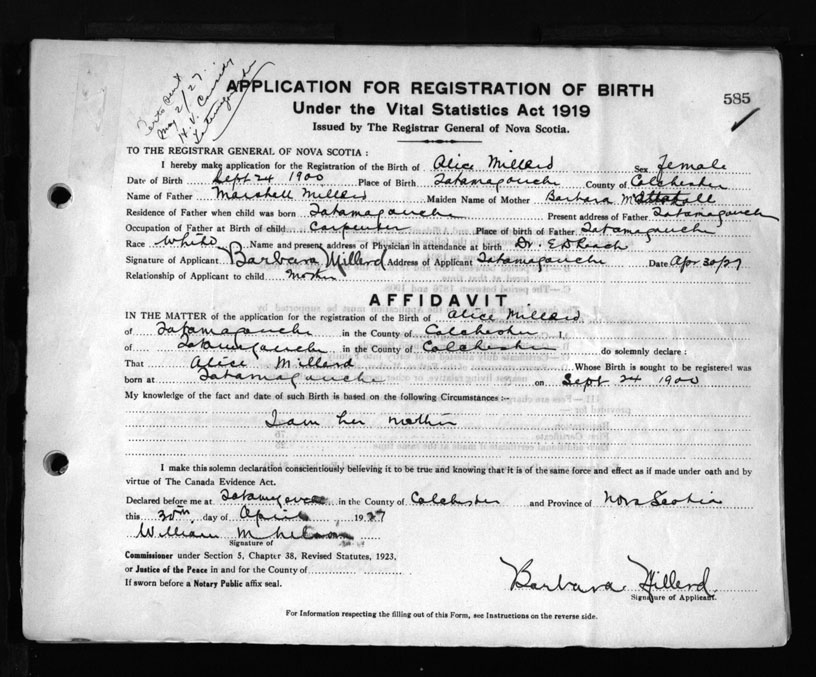 Certs sent
May 2/27.
H. V. Cassidy
Tatamagouche
APPLICATION FOR REGISTRATION OF BIRTH
585
Under the Vital Statistics Act 1919
Issued by The Registrar General of Nova Scotia.
TO THE REGISTRAR GENERAL OF NOVA SCOTIA :
I hereby make application for the Registration of the Birth of Alice Millard Sex Female
Date of Birth Sept 24 1900 Place of Birth Tatamagouche County of Colchester
Name of Father Marshall Millard Maiden Name of Mother Barbara
Residence of Father when child was born Tatamagouche Present address of Father Tatamagouche
Occupation of Father at Birth of child Carpenter Place of birth of Father Tatamagouche
Race White Name and present address of Physician in attendance at birth Dr. E D Roach
Signature of Applicant Barbara Millerd Address of Applicant Tatamagouche Date Apr 30/27
Relationship of Applicant to child Mother
AFFIDAVIT
IN THE MATTER of the application for the registration of the Birth of Alice Millard
of Tatamagouche in the County of Colchester I,
of Tatamagouche in the County of Colchester do solemnly declare :
That Alice Millerd Whose Birth is sought to be registered was
born at Tatamagouche on Sept 24 1900
My knowledge of the fact and date of such Birth is based on the following Circumstances :-
I am her mother
I make this solemn declaration conscientiously believing it to be true and knowing that it is of the same force and effect as if made under oath and by
virtue of The Canada Evidence Act.
Declared before me at Tatamagouche in the County of Colchester and Province of Nova Scotia
this 30th day of April 1927
William M
Signature of
Commissioner under Section 5, Chapter 38, Revised Statutes, 1923,
or Justice of the Peace in and for the County of
If sworn before a Notary Public affix seal.
Barbara Millerd
Signature of Applicant.
For Information respecting the filling out of this Form, see Instructions on the reverse side.